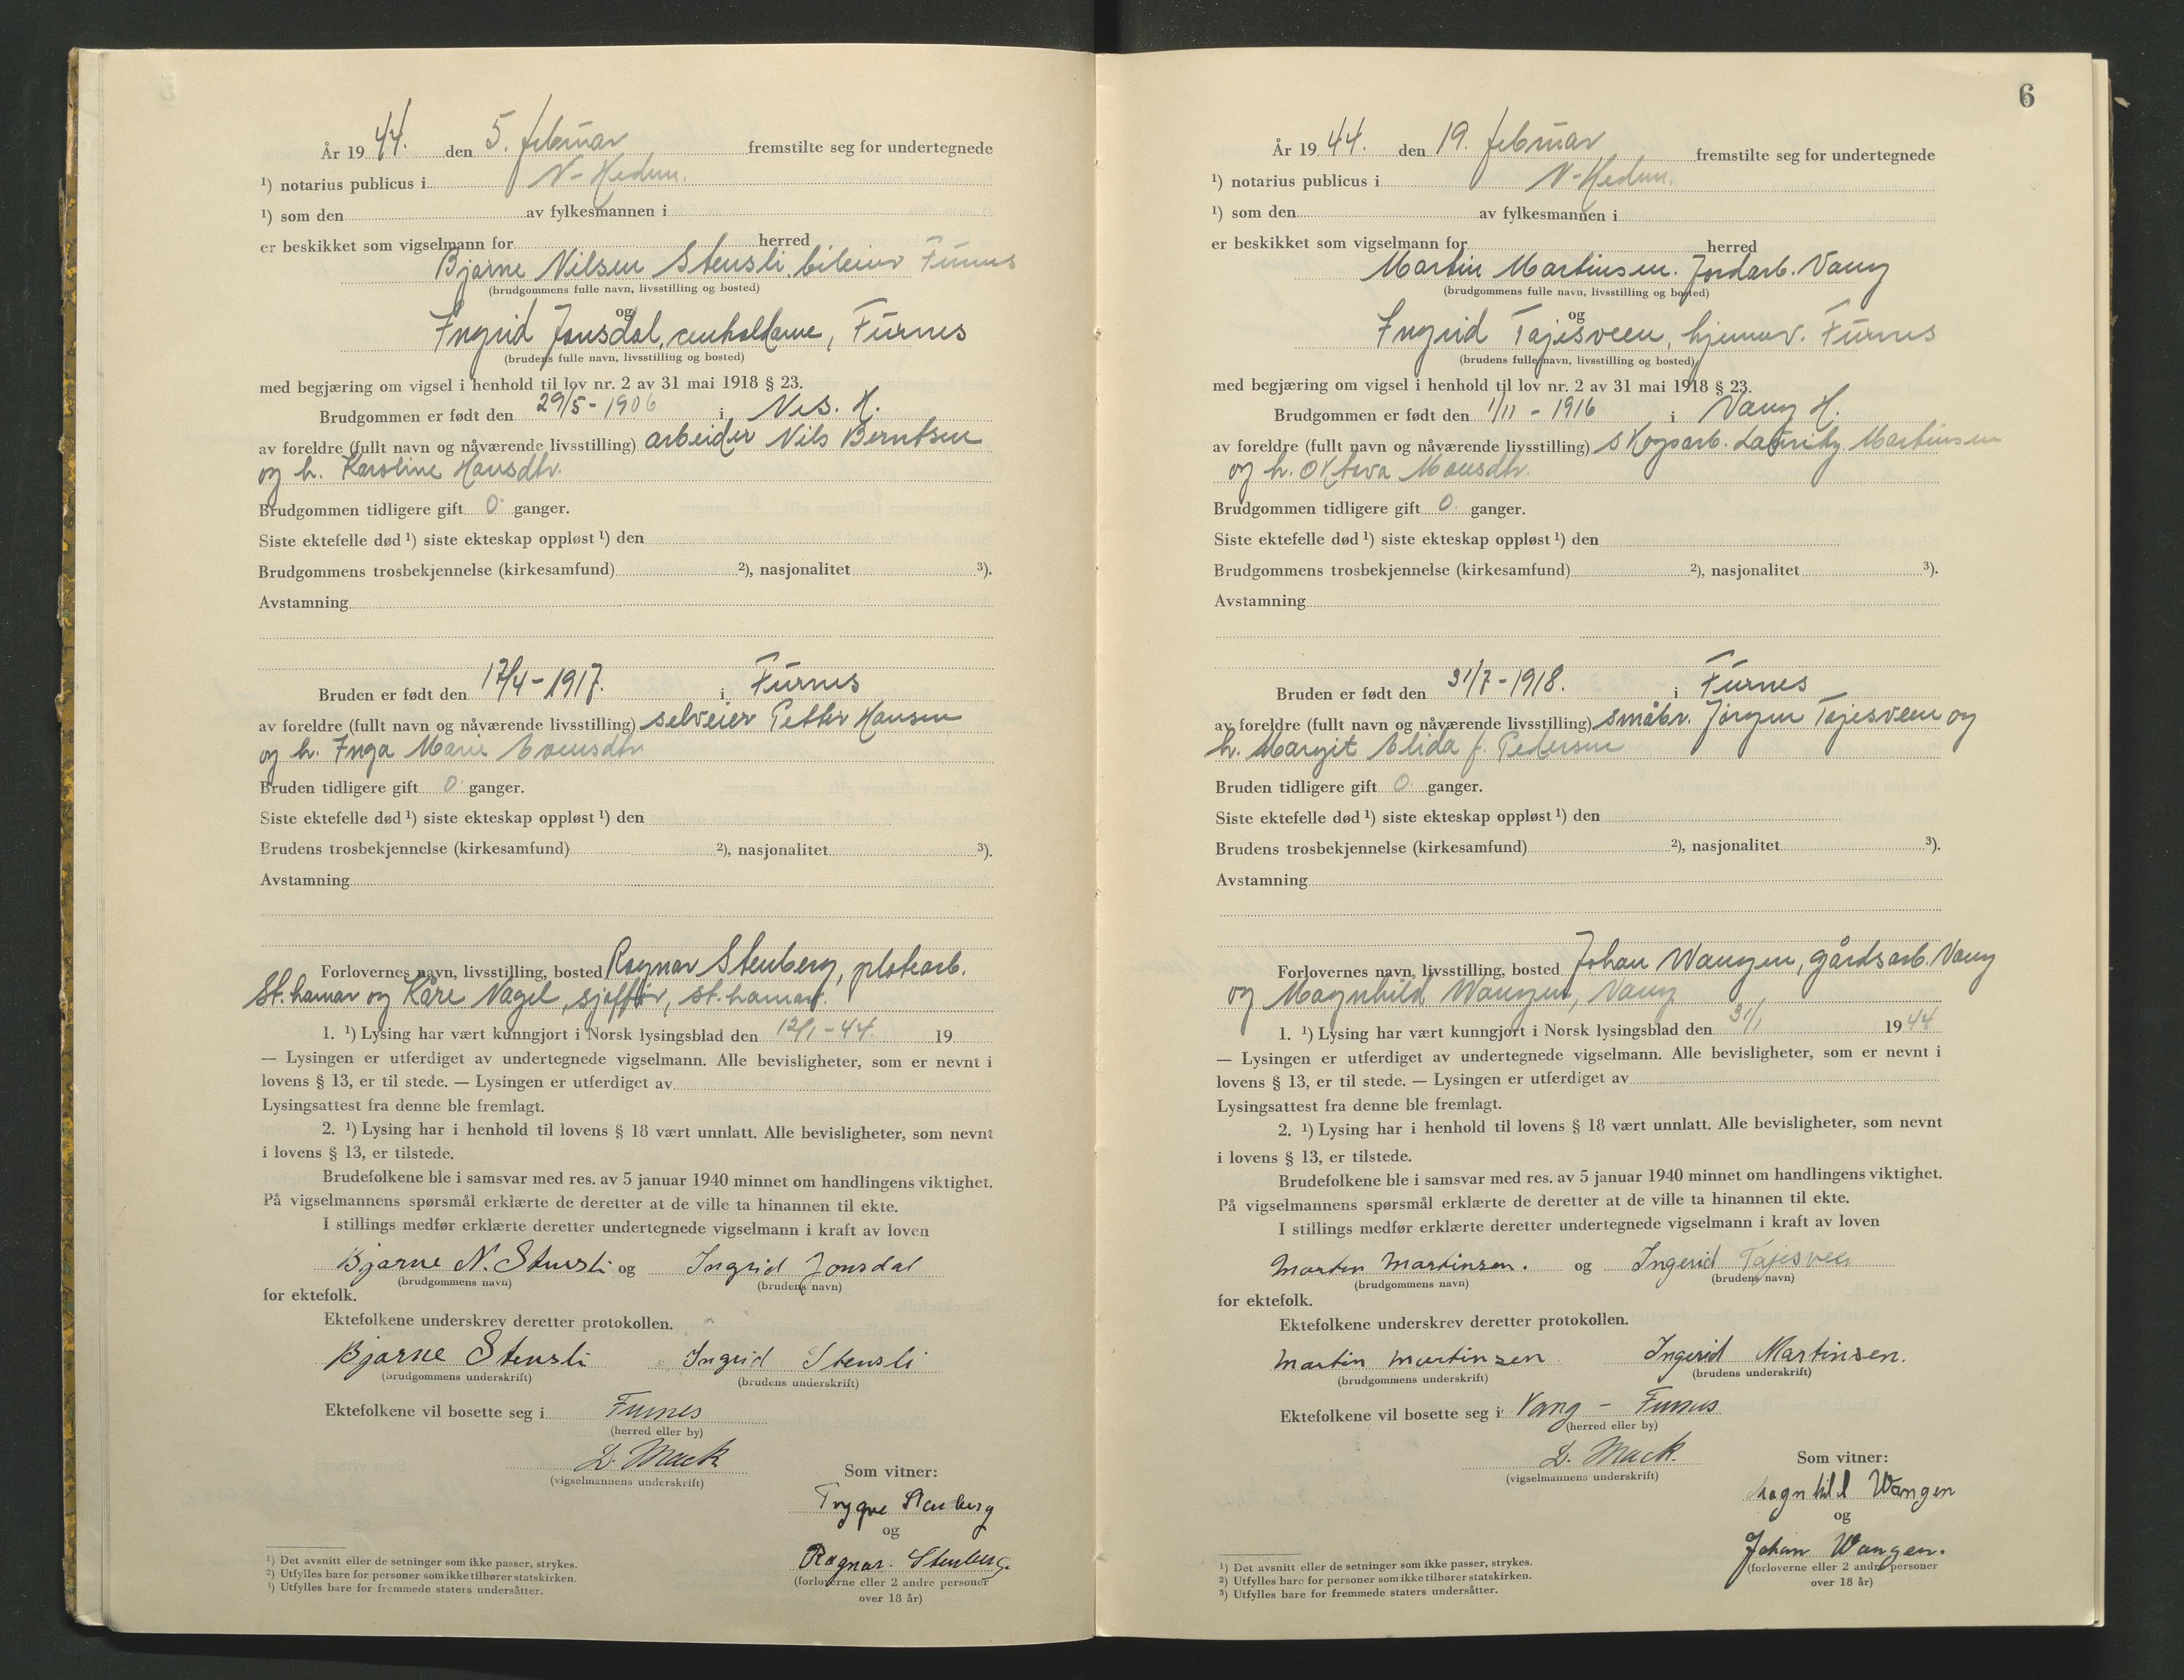 År 19 44. den 5. februar fremstilte seg for undertegnede
¹) notarius publicus i N-Hedm.
¹) som den av fylkesmannen i
er beskikket som vigselmann for herred
Bjarne Nilsen Stensli, bileier Furnes
(brudgommens fulle navn, livsstilling og bosted)
og
Ingrid Jonsdal, Furnes
(brudens fulle navn, livsstilling og bosted)
med begjæring om vigsel i henhold til lov nr. 2 av 31 mai 1918 § 23.
Brudgommen er født den 29/5 - 1906 i Nes. H.
av foreldre (fullt navn og nåværende livsstilling) arbeider Nils Berntsen
og h. Karoline Hansdtr.
Brudgommen tidligere gift 0 ganger.
Siste ektefelle død ¹) siste ekteskap oppløst ¹) den
Brudgommens trosbekjennelse (kirkesamfund) ²), nasjonalitet ³).
Avstamning
Bruden er født den 17/4 - 1917. i Furnes
av foreldre (fullt navn og nåværende livsstilling) selveier Petter Hansen
og h. Inga Marie Evensdtr
Bruden tidligere gift 0 ganger.
Siste ektefelle død ¹) siste ekteskap oppløst ¹) den
Brudens trosbekjennelse (kirkesamfund) ²), nasjonalitet ³).
Avstamning
Forlovernes navn, livsstilling, bosted Ragnar Stenberg, platearb.
St. hamar og Kåre Nagel, sjåffør, St. hamar.
1. ¹) Lysing har vært kunngjort i Norsk lysingsblad den 12/1 - 44. 19
— Lysingen er utferdiget av undertegnede vigselmann. Alle bevisligheter, som er nevnt i
lovens § 13, er til stede. — Lysingen er utferdiget av
Lysingsattest fra denne ble fremlagt.
2. ¹) Lysing har i henhold til lovens § 18 vært unnlatt. Alle bevisligheter, som nevnt
i lovens § 13, er tilstede.
Brudefolkene ble i samsvar med res. av 5 januar 1940 minnet om handlingens viktighet.
På vigselmannens spørsmål erklærte de deretter at de ville ta hinannen til ekte.
I stillings medfør erklærte deretter undertegnede vigselmann i kraft av loven
Bjarne N. Stensli og Ingrid Jonsdal
(brudgommens navn) (brudens navn)
for ektefolk.
Ektefolkene underskrev deretter protokollen.
Bjarne Stensli Ingrid Stensli
(brudgommens underskrift) (brudens underskrift)
Ektefolkene vil bosette seg i Furnes
(herred eller by)
D. Mack
(vigselmannens underskrift)
Som vitner:
Trygve Stenberg
og
Ragnar Stenberg.
(forloverne eller 2 andre personer
over 18 år)
¹) Det avsnitt eller de setninger som ikke passer, strykes.
²) Utfylles bare for personer som ikke tilhører statskirken.
³) Utfylles bare for fremmede staters undersåtter.
6
År 19 44. den 19. februar fremstilte seg for undertegnede
¹) notarius publicus i N-Hedm.
¹) som den av fylkesmannen i
er beskikket som vigselmann for herred
Martin Martinsen. Jordarb. Vang
(brudgommens fulle navn, livsstilling og bosted)
og
Ingrid Tajesveen, hjemmev. Furnes
(brudens fulle navn, livsstilling og bosted)
med begjæring om vigsel i henhold til lov nr. 2 av 31 mai 1918 § 23.
Brudgommen er født den 1/11 - 1916 i Vang H.
av foreldre (fullt navn og nåværende livsstilling) skogsarb. Lauritz Martinsen
og h. Oktava Mansdtr.
Brudgommen tidligere gift 0 ganger.
Siste ektefelle død ¹) siste ekteskap oppløst ¹) den
Brudgommens trosbekjennelse (kirkesamfund) ²), nasjonalitet ³).
Avstamning
Bruden er født den 31/7 - 1918. i Furnes
av foreldre (fullt navn og nåværende livsstilling) småbr. Jørgen Tajesveen og
h. Margit Elida f. Pedersen
Bruden tidligere gift 0 ganger.
Siste ektefelle død ¹) siste ekteskap oppløst ¹) den
Brudens trosbekjennelse (kirkesamfund) ²), nasjonalitet ³).
Avstamning
Forlovernes navn, livsstilling, bosted Johan Wangen, gårdsarb. Vang
og Magnhild Wangen, Vang
1. ¹) Lysing har vært kunngjort i Norsk lysingsblad den 31/1 19 44
— Lysingen er utferdiget av undertegnede vigselmann. Alle bevisligheter, som er nevnt i
lovens § 13, er til stede. — Lysingen er utferdiget av
Lysingsattest fra denne ble fremlagt.
2. ¹) Lysing har i henhold til lovens § 18 vært unnlatt. Alle bevisligheter, som nevnt
i lovens § 13, er tilstede.
Brudefolkene ble i samsvar med res. av 5 januar 1940 minnet om handlingens viktighet.
På vigselmannens spørsmål erklærte de deretter at de ville ta hinannen til ekte.
I stillings medfør erklærte deretter undertegnede vigselmann i kraft av loven
Martin Martinsen. og Ingerid Tajesveen
(brudgommens navn) (brudens navn)
for ektefolk.
Ektefolkene underskrev deretter protokollen.
Martin Martinsen Ingerid Martinsen.
(brudgommens underskrift) (brudens underskrift)
Ektefolkene vil bosette seg i Vang - Furnes
(herred eller by)
D. Mack.
(vigselmannens underskrift)
Som vitner:
Magnhild Wangen
og
Johan Wangen.
(forloverne eller 2 andre personer
over 18 år)
¹) Det avsnitt eller de setninger som ikke passer, strykes.
²) Utfylles bare for personer som ikke tilhører statskirken.
³) Utfylles bare for fremmede staters undersåtter.